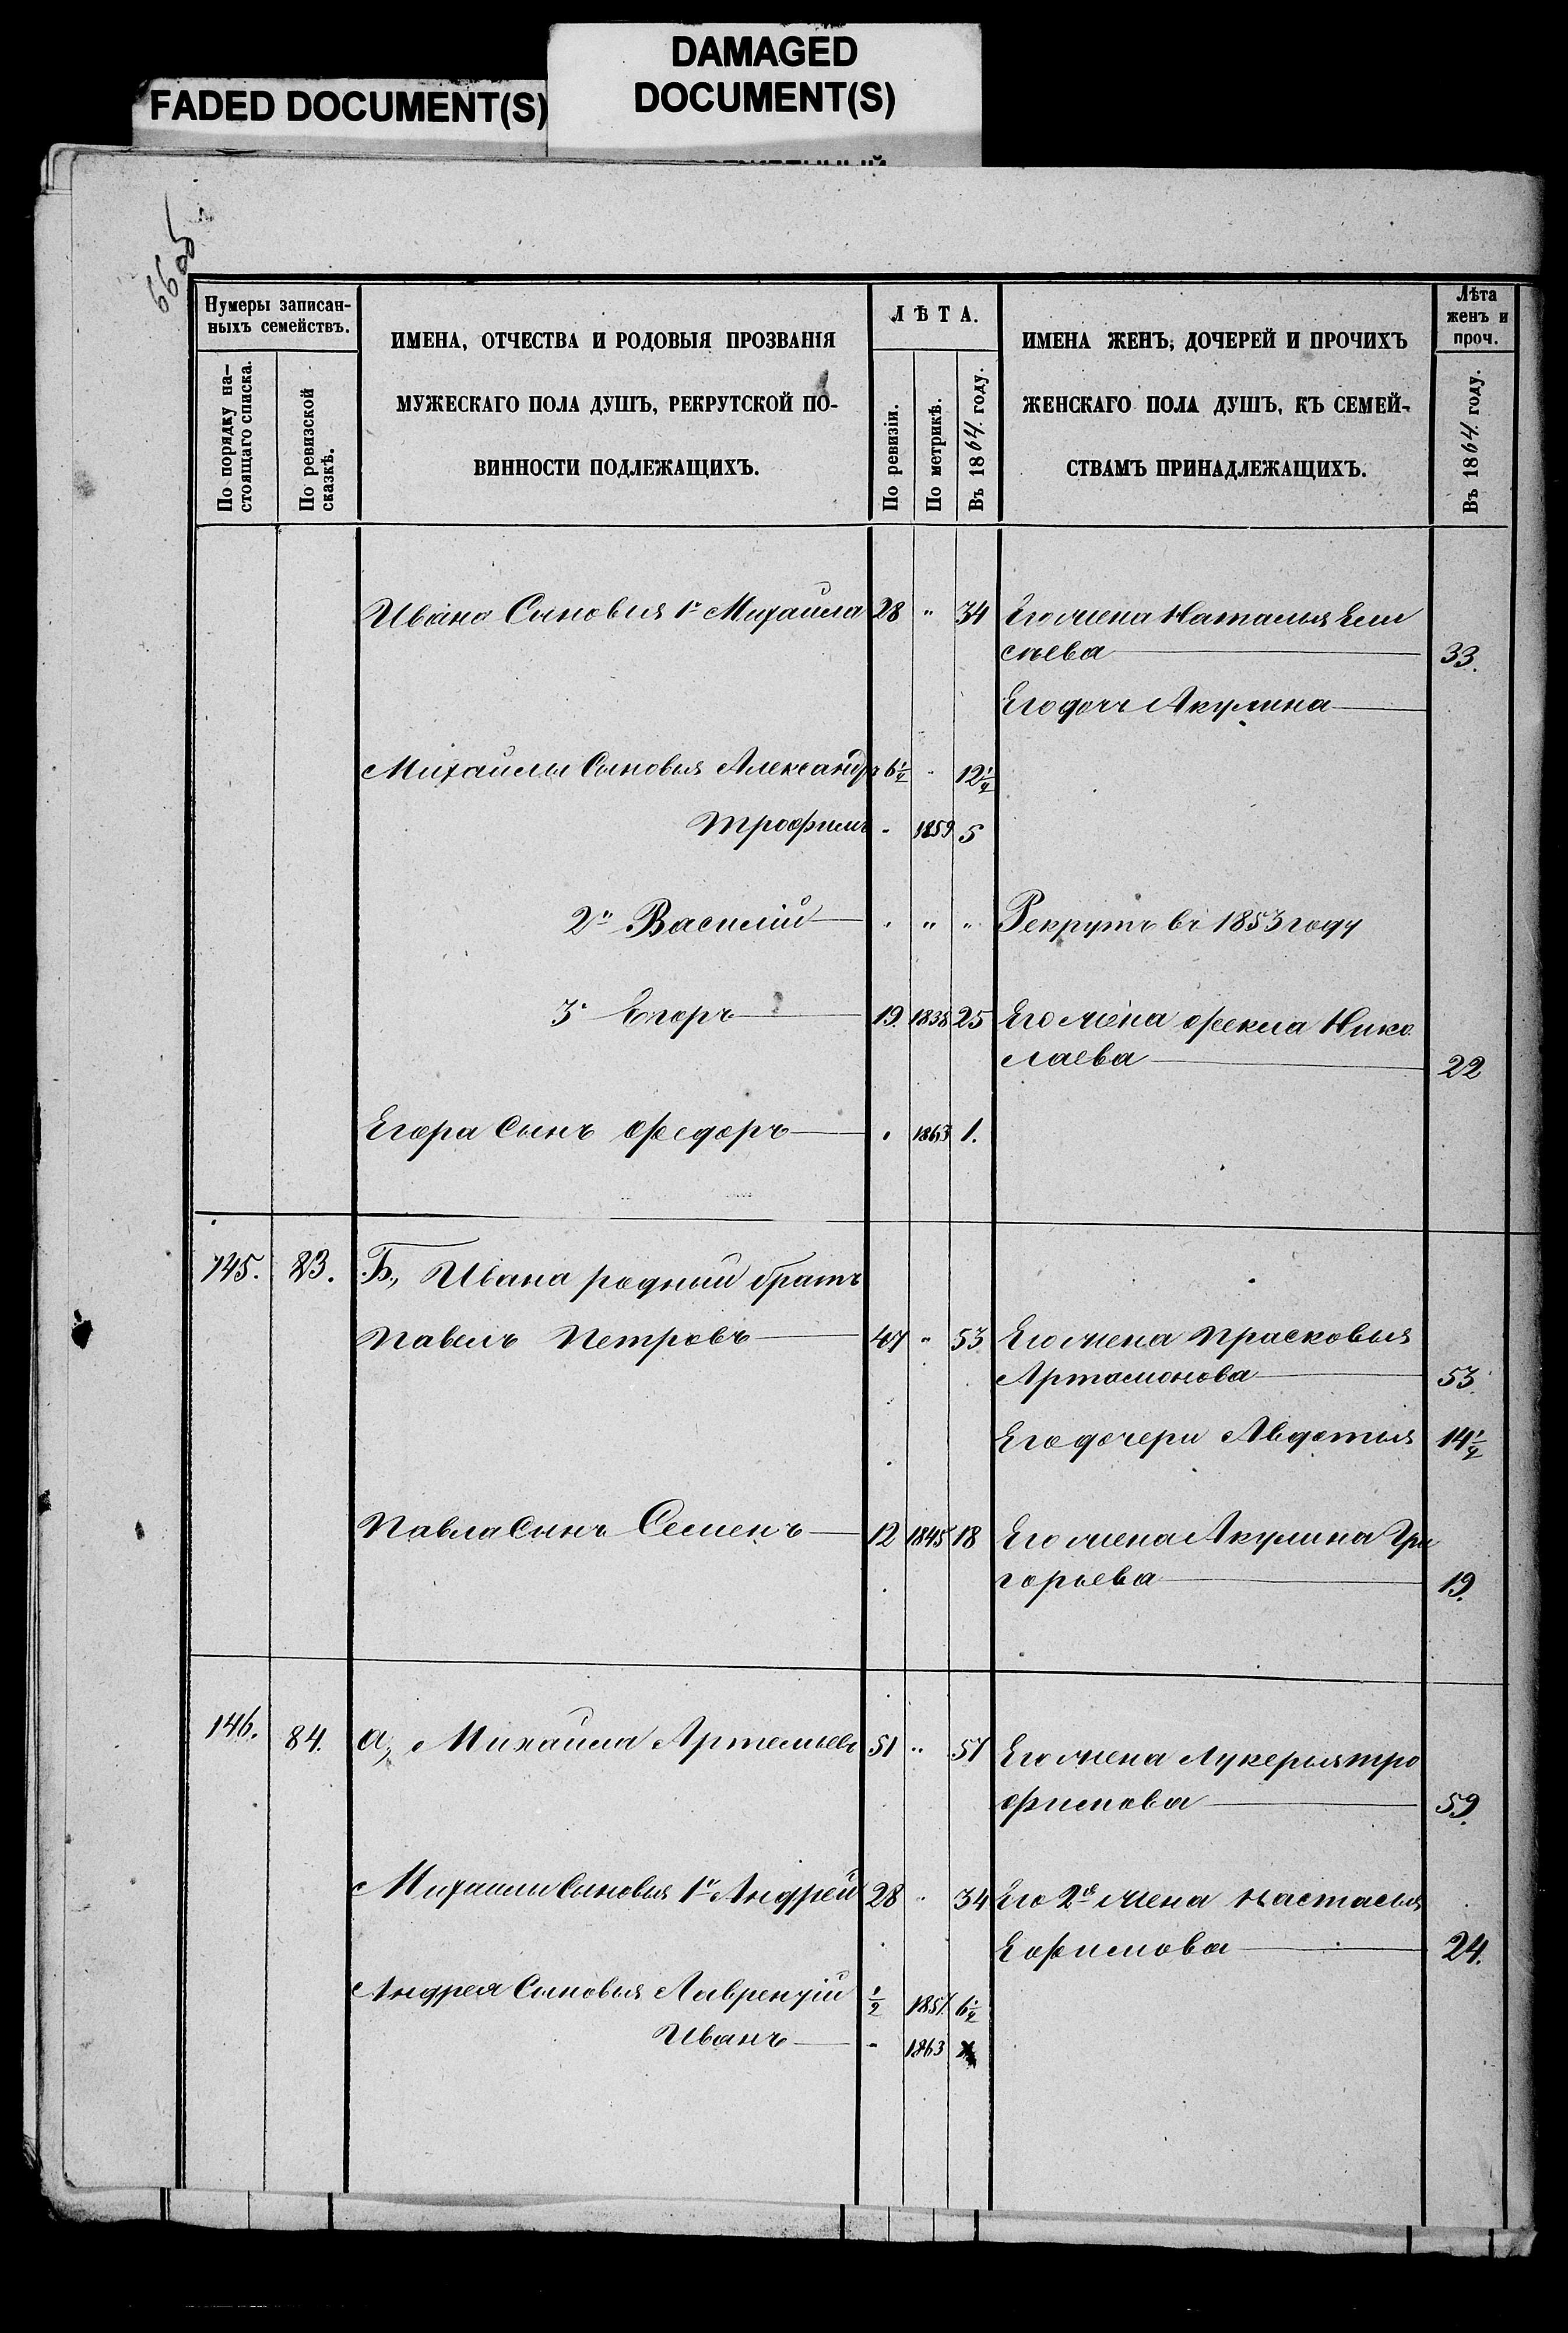 FADED DOCUMENT(S)
DAMAGED
DOCUMENT(S)
Нумеры записан-
ныхъ семействъ.
По порядку на-
стоящаго списка.
По ревизской
сказкѣ.
ИМЕНА, ОТЧЕСТВА И РОДОВЫЯ ПРОЗВАНІЯ
МУЖЕСКАГО ПОЛА ДУШЪ, РЕКРУТСКОЙ ПО-
ВИННОСТИ ПОДЛЕЖАЩИХЪ.
ЛѢТА.
По ревизіи.
По метрикѣ.
Въ 1864 году.
ИМЕНА ЖЕНЪ, ДОЧЕРЕЙ И ПРОЧИХЪ
ЖЕНСКАГО ПОЛА ДУШЪ, КЪ СЕМЕЙ-
СТВАМЪ ПРИНАДЛЕЖАЩИХЪ.
Лѣта
женъ и
проч.
Въ 1864 году.
Ивана Сыновья 1й Михайла 28 " 34 Его жена Наталья Ели
сѣева 33.
Его дочь Акулина
Михайлы Сыновья Александръ 6½ " 12½
Трофимъ " 1859 5
2й Василій " " " Рекрутъ въ 1853 году
3й Егоръ 19. 1838 25 Его жена Фекла Нико
лаева 22
Егора сынъ Федоръ " 1863 1.
145. 83. Б, Ивана родный братъ
Павелъ Петровъ 47 " 53 Его жена Прасковья
Артамонова 53.
Его дочери Авдотья 14½
Павла сынъ Семенъ 12 1845 18 Его жена Акулина Гри
горьева 19.
146. 84. а, Михайла Артемьевъ 51 " 57 Его жена Лукерья Тро
фимова 59.
Михайлы Сыновья 1й Андрей 28 " 34 Его 2я жена Настасья
Ефимова 24.
Андрея Сыновья Лаврентій ½ 1857 6½
Иванъ " 1863